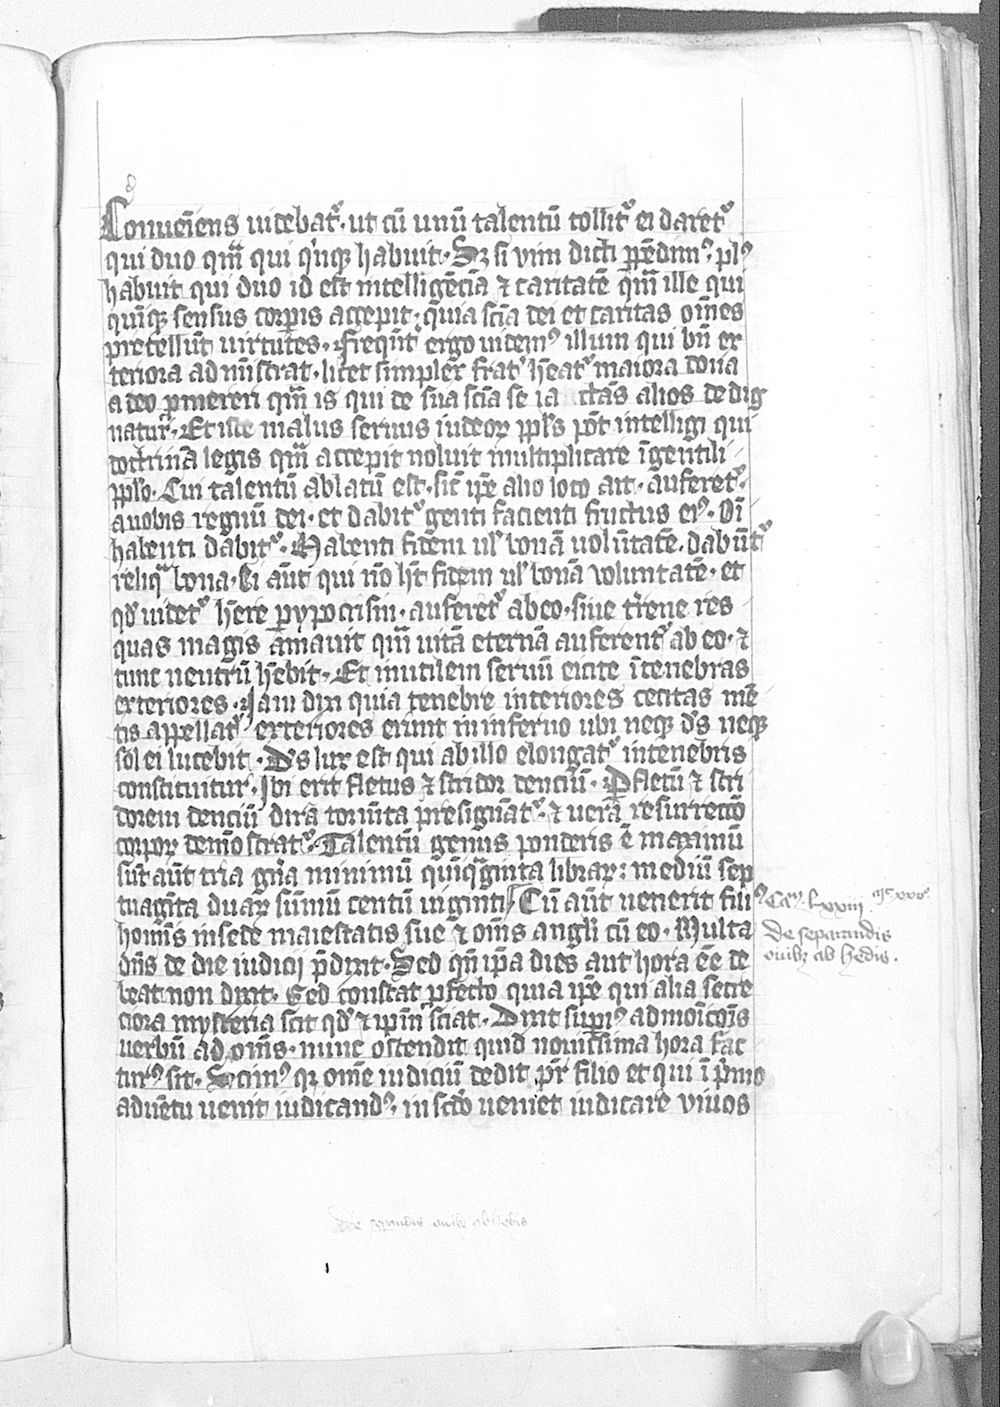 Conueniens uidebat᷑. ut cū unū talentū tollit᷑ ei daret᷑
qui duo qm̄ qui q̇nqꝫ habuit. Sꝫ si vim dicti ꝑpēdimꝰ. plꝰ
habuit qui duo id est intelligēciā ⁊ caritatē qm̄ ille qui
quinqꝫ sensus corꝑis accepit. quia scīa dei et caritas om̄es
precellūt uirtutes. freqn̄t ergo uidemꝰ illum qui bn̄ ex
teriora admīstrat. licet simplex frat᷑ hēat᷑ maiora dona
a deo ꝓmereri qm̄ is qui de sua scīa se ia ctās alios dedig
natur. Et iste malus seruus iudeoꝝ ppl̄s pōt intelligi qui
doctrinā legis qm̄ accepit noluit multiplicare ī gentili
ppl̄o. Cui talentū ablatū est. sic̄ ip̄e alio loco ait. auferet᷑
a uobis regnū dei. et dabit᷑ genti facienti fructus eiꝰ. Oī
habenti dabit᷑. Habenti fidem ul̄ bonā uolūtatē. dabūt᷑
reliq̄ bona. Ei aūt qui nō hꝫ fidem ul̄ bonā voluntatē. et
qd̄ uidet᷑ hēre ꝑ ypocrisin. auferet᷑ ab eo. siue t̄rene res
quas magis amauit qm̄ uitā eternā auferent᷑ ab eo. ⁊
tunc neutrū hēbit. Et inutilem seruū eicite ī tenebras
exteriores. Jam dixi quia tenebre interiores cecitas mē
tis appellat᷑ exteriores erunt in inferno ubi neqꝫ ds̄ neqꝫ
sol ei lucebit. Ds̄ lux est qui ab illo elongat᷑ in tenebris
constituitur. Ibi erit fletus ⁊ stridor denciū. Ꝑ fletū ⁊ stri
dorem denciū dira tormēta presignat᷑. ⁊ uera resurrectō
corpoꝝ demōstrat᷑. Talentū genus ponderis ē maximū
sūt aūt tria gn̄a minimū quīqginta libraꝝ: mediū sep
tuagīta duaꝝ sūmū centū uiginti Cū aūt uenerit filiꝰ
homīs in sede maiestatis sue ⁊ om̄s angl̄i cū eo. Multa
dn̄s de die iudicij p̄dixit. Sed qn̄ ip̄a dies aut hora eēt de
beat non dixit. Sed constat ꝓfecto quia ip̄e qui alia secre
ciora mysteria scit qd̄ ⁊ ip̄m sciat. Dixit supiꝰ admoīcōis
uerbū ad om̄s. nunc ostendit quid nouissima hora fac
turꝰ sit. Scimꝰ qꝛ om̄e iudiciū dedit pr̄ filio et qui ī p̄mo
aduētu uenit iudicandꝰ. in scd̄o ueniet iudicare viuos
Caᵐ. lxxviii
De separandis
ouibꝫ ab hedis.
De separandis ouibꝫ ab hedis